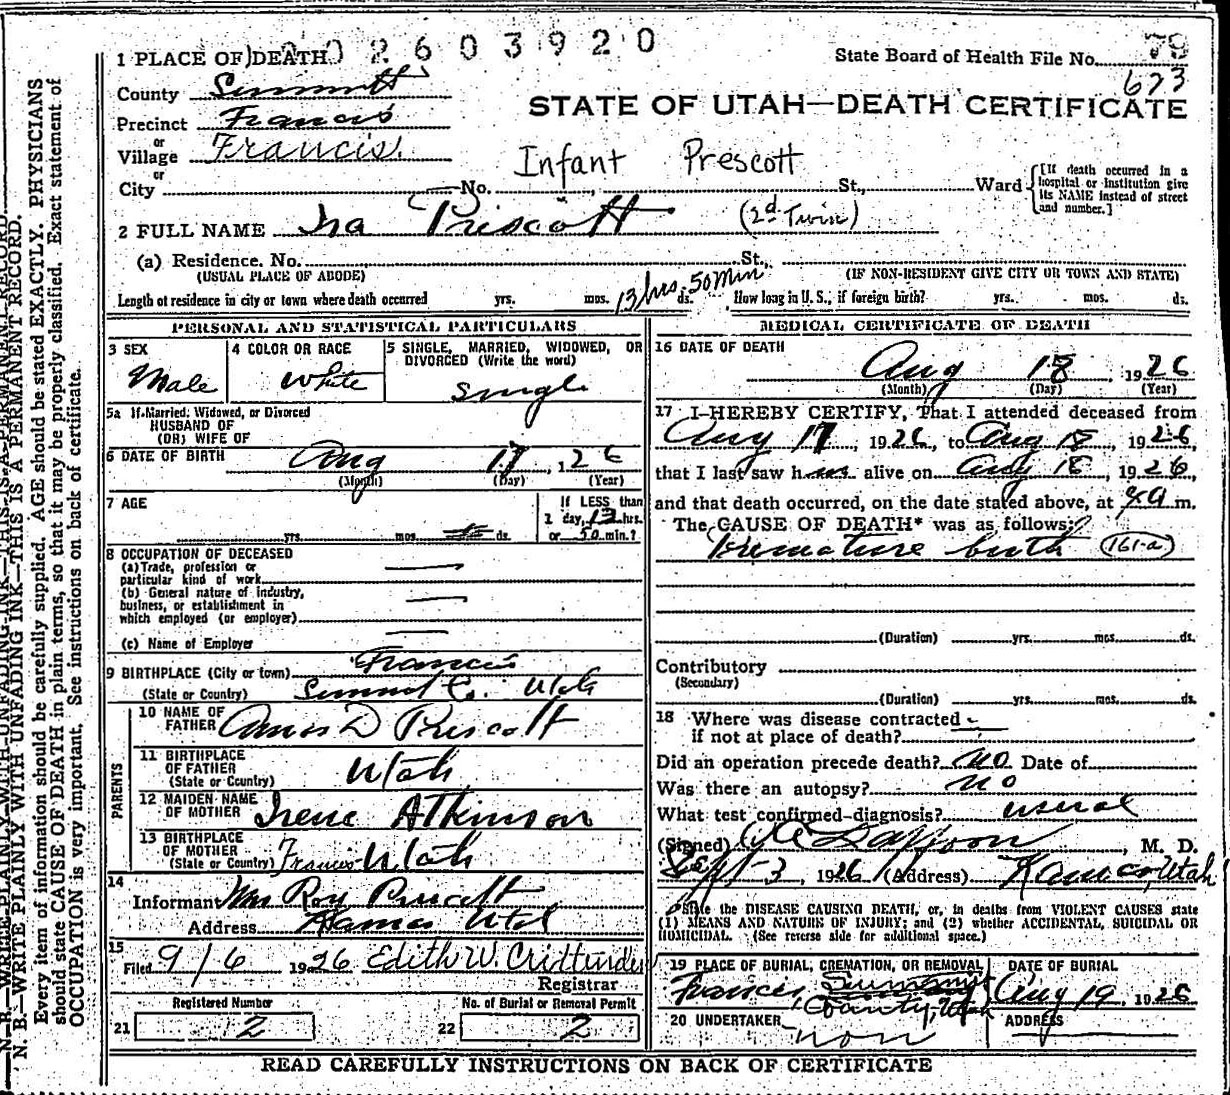 2 6 0 3 9 2 0
1 PLACE OF DEATH
State Board of Health File No. 79
673
County Summitt
STATE OF UTAH—DEATH CERTIFICATE
Precinct Francis
or
Village Francis.
or
City No. St., Ward
Infant Prescott
[If death occurred in a hospital or institution give its NAME instead of street and number.]
2 FULL NAME Ira Priscott (2d Twin)
(a) Residence. No. St.,
(USUAL PLACE OF ABODE) (IF NON-RESIDENT GIVE CITY OR TOWN AND STATE)
Length of residence in city or town where death occurred yrs. mos. 13 hrs. 50 Min ds. How long in U. S., if foreign birth? yrs. mos. ds.
PERSONAL AND STATISTICAL PARTICULARS
3 SEX
Male
4 COLOR OR RACE
White
5 SINGLE, MARRIED, WIDOWED, OR DIVORCED (Write the word)
Single
5a If Married, Widowed, or Divorced
HUSBAND OF
(OR) WIFE OF
6 DATE OF BIRTH Aug 17, 1926
(Month) (Day) (Year)
7 AGE
yrs. mos. ds.
If LESS than
1 day, 13 hrs.
or 50 min.?
8 OCCUPATION OF DECEASED
(a) Trade, profession or
particular kind of work
(b) General nature of industry,
business, or establishment in
which employed (or employer)
(c) Name of Employer
9 BIRTHPLACE (City or town) Francis
(State or Country) Summit Co. Utah
PARENTS
10 NAME OF
FATHER Amos D Priscott
11 BIRTHPLACE
OF FATHER
(State or Country) Utah
12 MAIDEN NAME
OF MOTHER Irene Atkinson
13 BIRTHPLACE
OF MOTHER
(State or Country) Francis Utah
14
Informant Mrs Roy Priscott
Address Kamas Utah
15
Filed 9/6 1926 Edith W. Crittenden
Registrar
Registered Number
21 2
No. of Burial or Removal Permit
22 2
MEDICAL CERTIFICATE OF DEATH
16 DATE OF DEATH
Aug 18, 1926
(Month) (Day) (Year)
17 I HEREBY CERTIFY, That I attended deceased from
Aug 17, 1926, to Aug 18, 1926
that I last saw him alive on Aug 18, 1926,
and that death occurred, on the date stated above, at m.
The CAUSE OF DEATH* was as follows:
Premature birth (161-a)
(Duration) yrs. mos. ds.
Contributory
(Secondary)
(Duration) yrs. mos. ds.
18 Where was disease contracted
if not at place of death?
Did an operation precede death? no Date of
Was there an autopsy? no
What test confirmed diagnosis? usual
(Signed) , M. D.
Sept 3, 1926 (Address) Kamas, Utah
*State the DISEASE CAUSING DEATH, or, in deaths from VIOLENT CAUSES state
(1) MEANS AND NATURE OF INJURY; and (2) whether ACCIDENTAL, SUICIDAL OR
HOMICIDAL. (See reverse side for additional space.)
19 PLACE OF BURIAL, CREMATION, OR REMOVAL
Francis, Summit
County, Utah
DATE OF BURIAL
Aug 19, 1926
20 UNDERTAKER
non
ADDRESS
READ CAREFULLY INSTRUCTIONS ON BACK OF CERTIFICATE
N. B.—WRITE PLAINLY WITH UNFADING INK—THIS IS A PERMANENT RECORD.
N. B.—WRITE PLAINLY WITH UNFADING INK—THIS IS A PERMANENT RECORD.
Every item of information should be carefully supplied. AGE should be stated EXACTLY. PHYSICIANS
should state CAUSE OF DEATH in plain terms, so that it may be properly classified. Exact statement of
OCCUPATION is very important. See instructions on back of certificate.